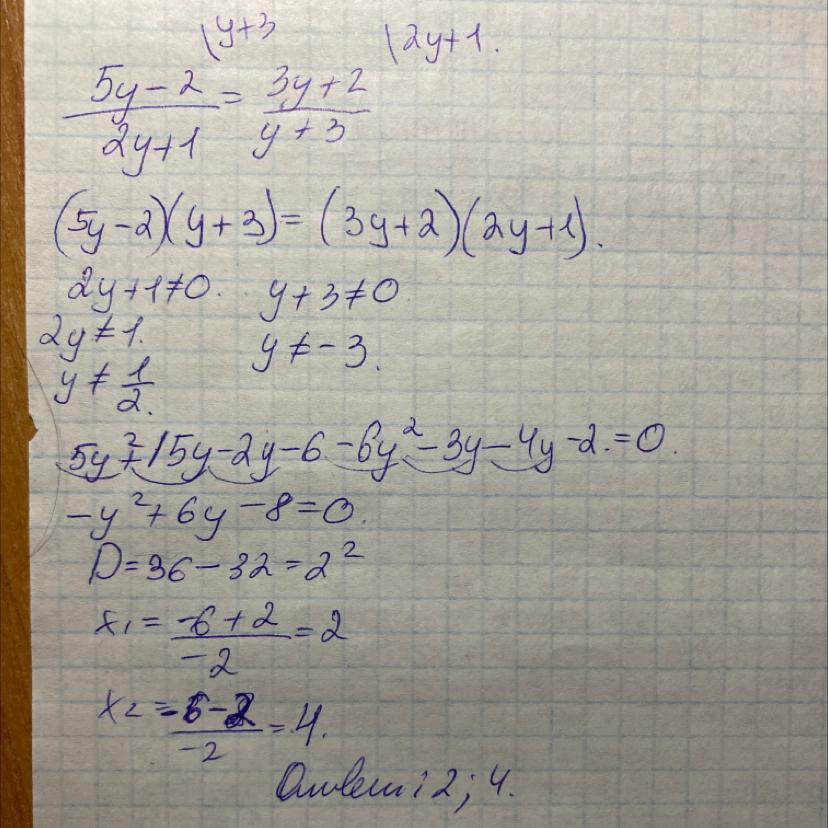 \y+3 \2y+1.
(5y-2)/(2y+1) = (3y+2)/(y+3)
(5y-2)(y+3)=(3y+2)(2y+1).
2y+1≠0. y+3≠0.
2y≠1. y≠-3.
y≠1/2.
5y²+15y-2y-6-6y²-3y-4y-2.=0.
-y²+6y-8=0.
D=36-32=2²
x₁=(-6+2)/(-2)=2
x₂=(-6-2)/(-2)=4.
Ответ: 2; 4.